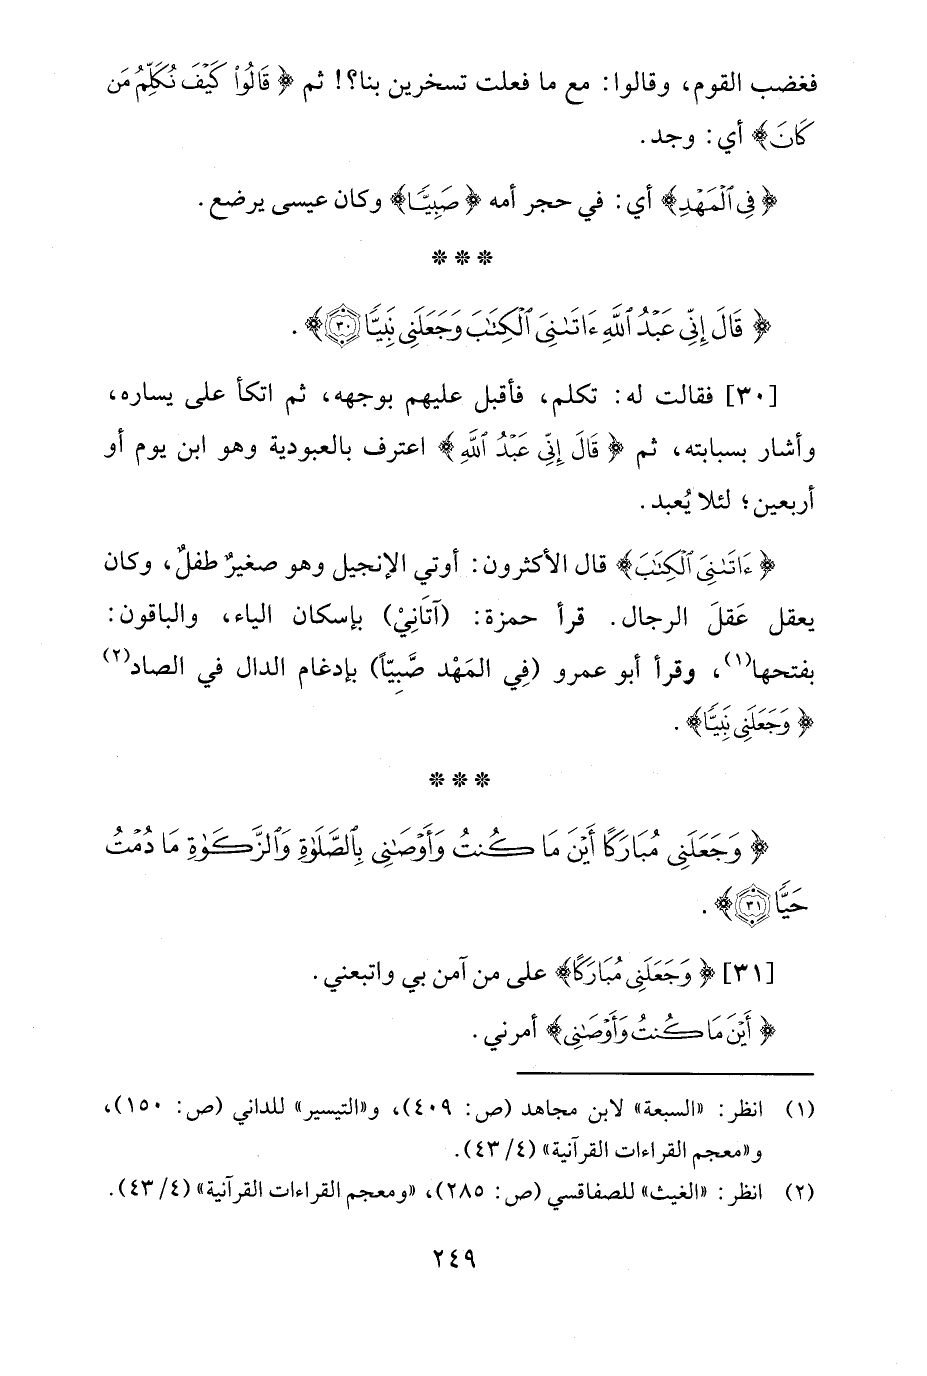 فغضب القوم، وقالوا: مع ما فعلت تسخرين بنا؟! ثم ﴿قَالُواْ كَيۡفَ نُكَلِّمُ مَن
كَانَ﴾ أي: وجد.
﴿فِي ٱلۡمَهۡدِ﴾ أي: في حجر أمه ﴿صَبِيّٗا﴾ وكان عيسى يرضع.
* * *
﴿قَالَ إِنِّي عَبۡدُ ٱللَّهِ ءَاتَىٰنِيَ ٱلۡكِتَٰبَ وَجَعَلَنِي نَبِيّٗا ٣٠﴾.
[٣٠] فقالت له: تكلم، فأقبل عليهم بوجهه، ثم اتكأ على يساره،
وأشار بسبابته، ثم ﴿قَالَ إِنِّي عَبۡدُ ٱللَّهِ﴾ اعترف بالعبودية وهو ابن يوم أو
أربعين؛ لئلا يُعبد.
﴿ءَاتَىٰنِيَ ٱلۡكِتَٰبَ﴾ قال الأكثرون: أوتي الإنجيل وهو صغيرٌ طفلٌ، وكان
يعقل عَقلَ الرجال. قرأ حمزة: (آتَانِيْ) بإسكان الياء، والباقون:
بفتحها(١)، وقرأ أبو عمرو (فِي المَهْد صَّبِيّاً) بإدغام الدال في الصاد(٢)
﴿وَجَعَلَنِي نَبِيّٗا﴾.
* * *
﴿وَجَعَلَنِي مُبَارَكًا أَيۡنَ مَا كُنتُ وَأَوۡصَٰنِي بِٱلصَّلَوٰةِ وَٱلزَّكَوٰةِ مَا دُمۡتُ
حَيّٗا ٣١﴾.
[٣١] ﴿وَجَعَلَنِي مُبَارَكًا﴾ على من آمن بي واتبعني.
﴿أَيۡنَ مَا كُنتُ وَأَوۡصَٰنِي﴾ أمرني.
(١) انظر: «السبعة» لابن مجاهد (ص: ٤٠٩)، و«التيسير» للداني (ص: ١٥٠)،
و«معجم القراءات القرآنية» (٤/ ٤٣).
(٢) انظر: «الغيث» للصفاقسي (ص: ٢٨٥)، «ومعجم القراءات القرآنية» (٤/ ٤٣).
٢٤٩